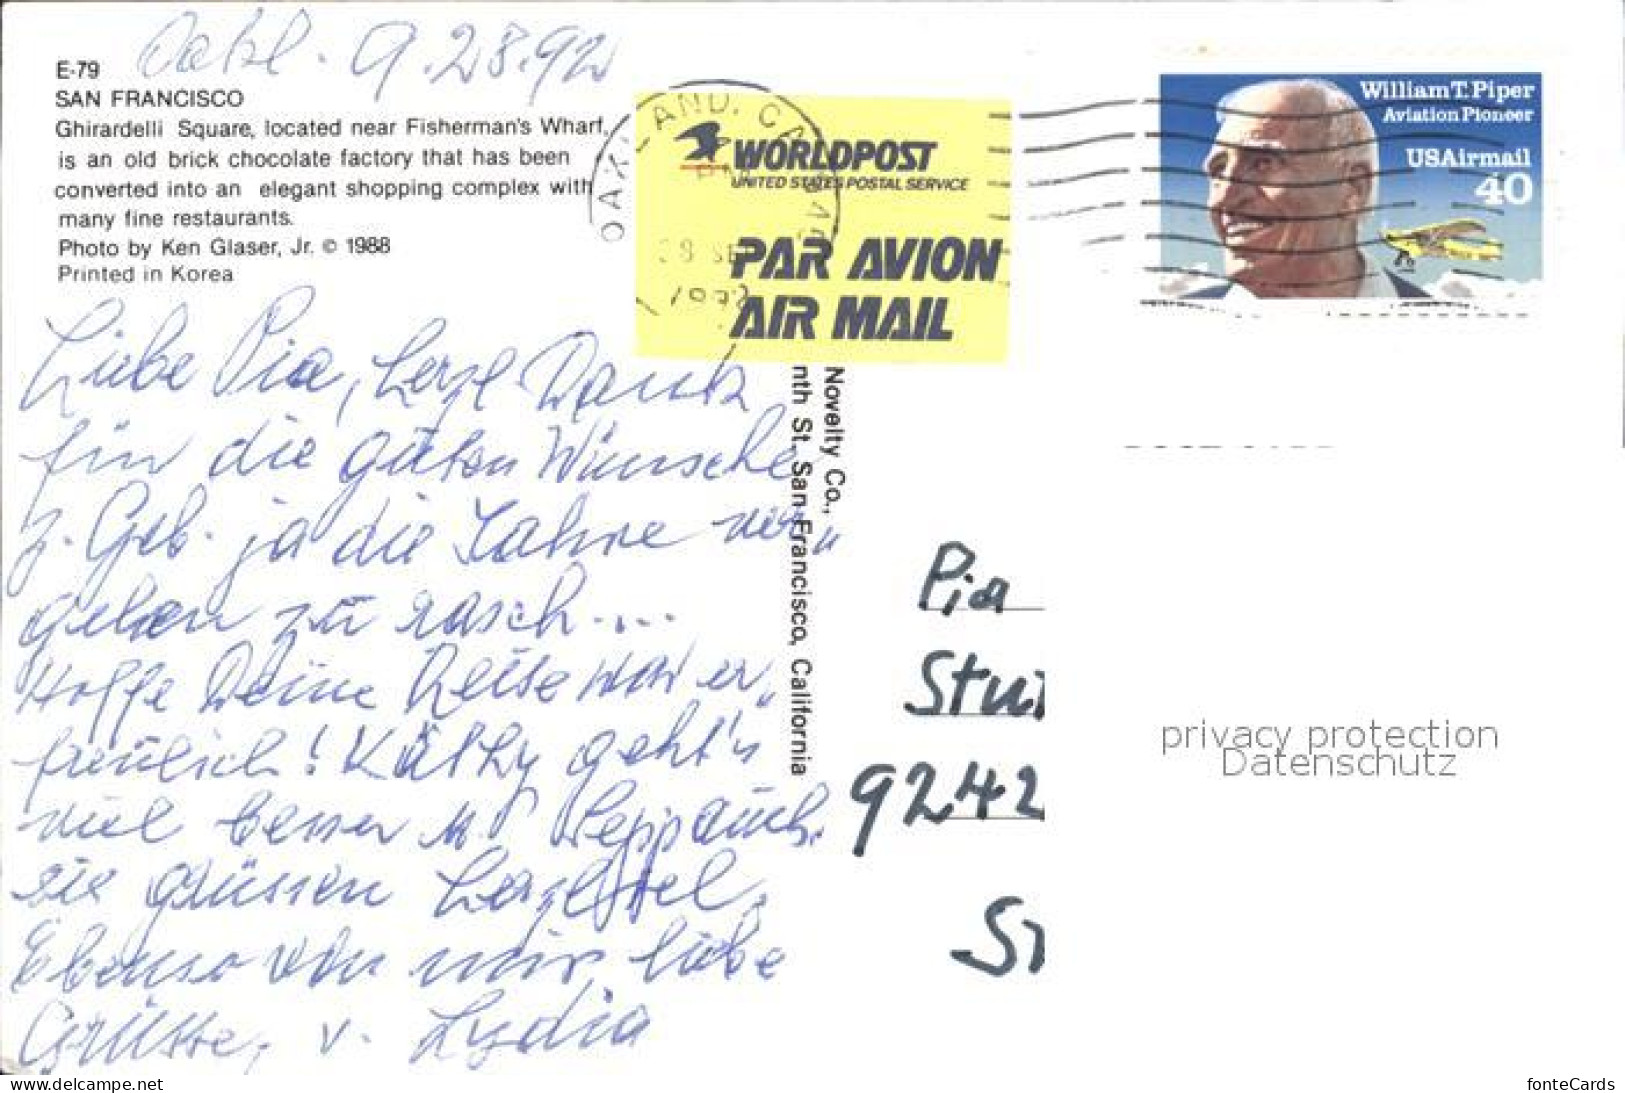 Oakl. 9.28.92
E-79
SAN FRANCISCO
Ghirardelli Square, located near Fisherman's Wharf,
is an old brick chocolate factory that has been
converted into an elegant shopping complex with
many fine restaurants.
Photo by Ken Glaser, Jr. © 1988
Printed in Korea
Liebe Pia, herzl Dank
für die guten Wünsche
z. Geb. ja die Jahre ver„
gehen zu rasch....
Hoffe Deine Reise war er„
freulich! Käthy geht's
viel besser u. Sepp auch.
sie grüssen herzlichst,
Ebenso von mir liebe
Grüsse, v. Lydia
OAKLAND, CA
28 SEP
1992
WORLDPOST
UNITED STATES POSTAL SERVICE
PAR AVION
AIR MAIL
William T. Piper
Aviation Pioneer
USAirmail
40
Novelty Co.,
nth St. San Francisco, California
Pia
9242
privacy protection
Datenschutz
www.delcampe.net
fonteCards